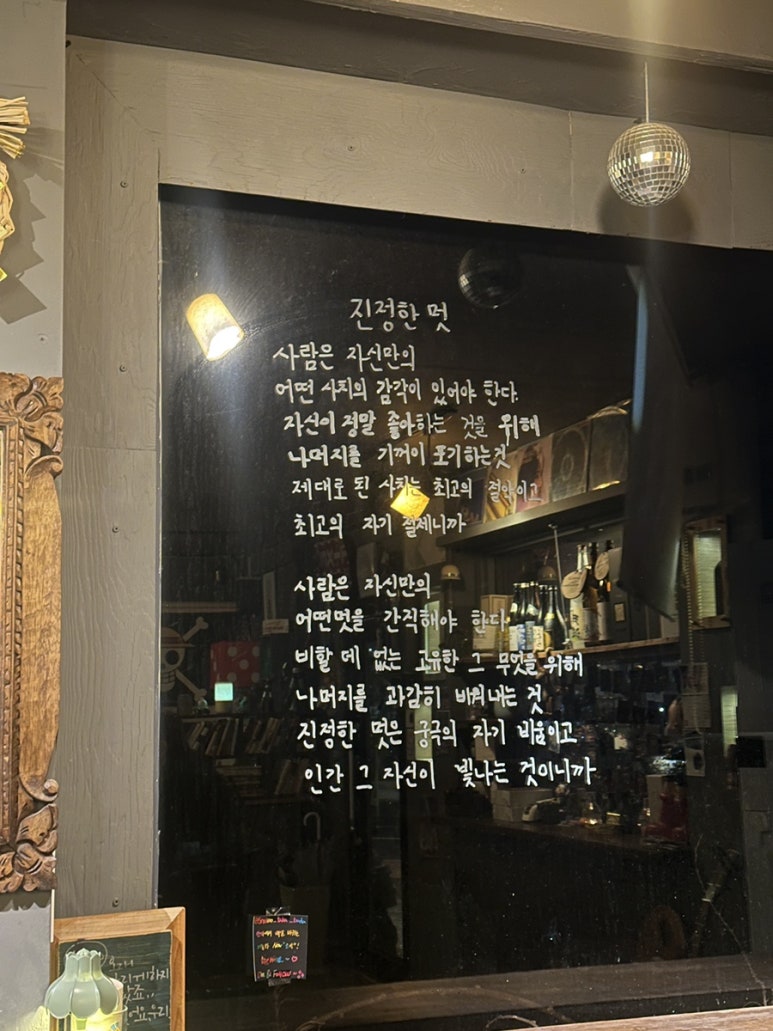 진정한 멋
사람은 자신만의
어떤 사치의 감각이 있어야 한다.
자신이 정말 좋아하는 것을 위해
나머지를 기꺼이 포기하는것
제대로 된 사치는 최고의 절약이고
최고의 자기 절제니까
사람은 자신만의
어떤멋을 간직해야 한다
비할 데 없는 고유한 그 무엇을 위해
나머지를 과감히 비워내는 것
진정한 멋은 궁극의 자기 비움이고
인간 그 자신이 빛나는 것이니까